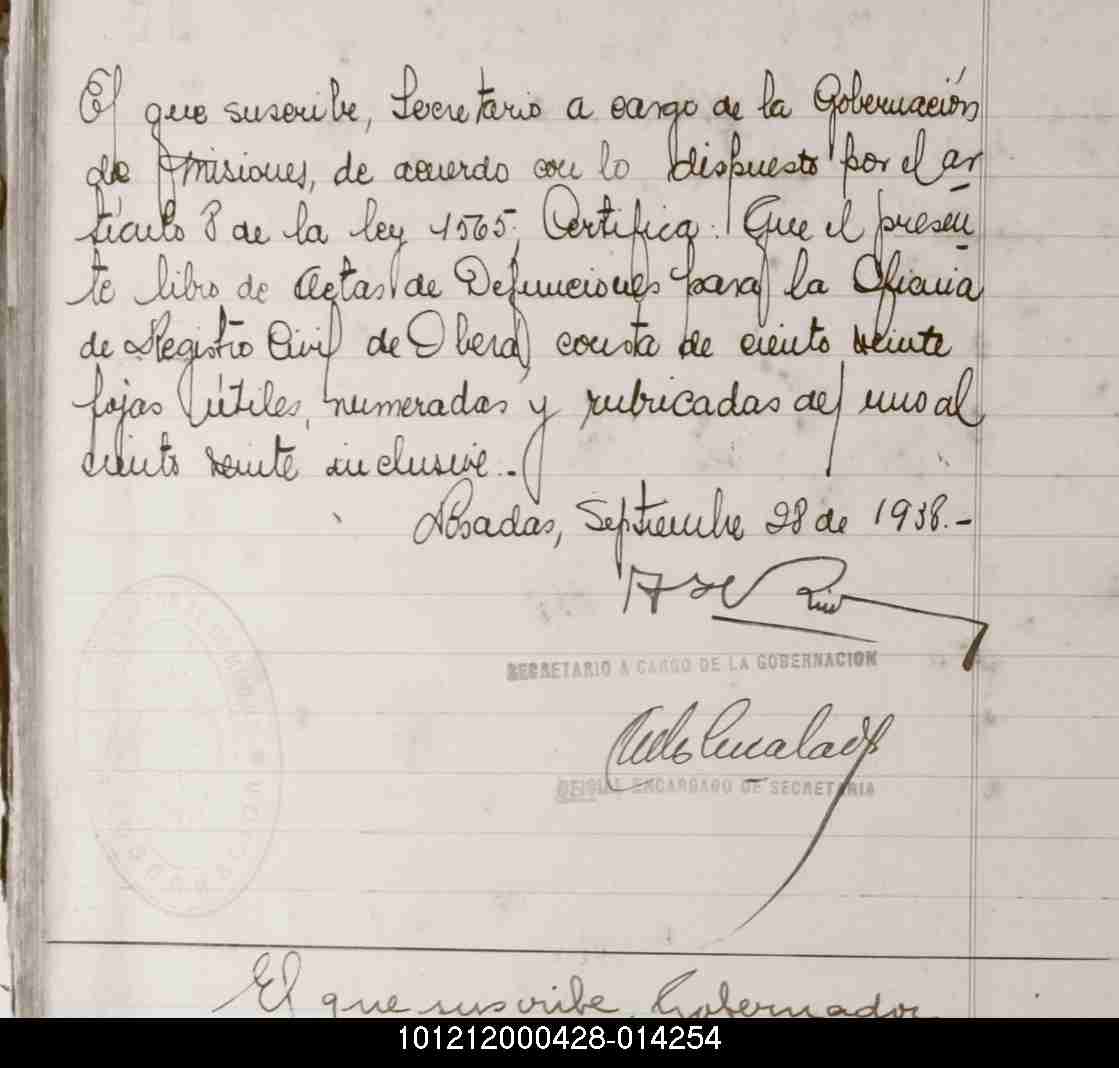 El que suscribe, Secretario a cargo de la Gobernación
de Misiones, de acuerdo con lo dispuesto por el ar
tículo 8 de la ley 1565, Certifica: Que el presen
te libro de Actas de Defunciones para la Oficina
de Registro Civil de Oberá, consta de ciento veinte
fojas útiles, numeradas y rubricadas del uno al
ciento veinte inclusive.-
Posadas, Septiembre 28 de 1938.-
SECRETARIO A CARGO DE LA GOBERNACION
OFICIAL ENCARGADO DE SECRETARIA
El que suscribe, Gobernador
101212000428-014254